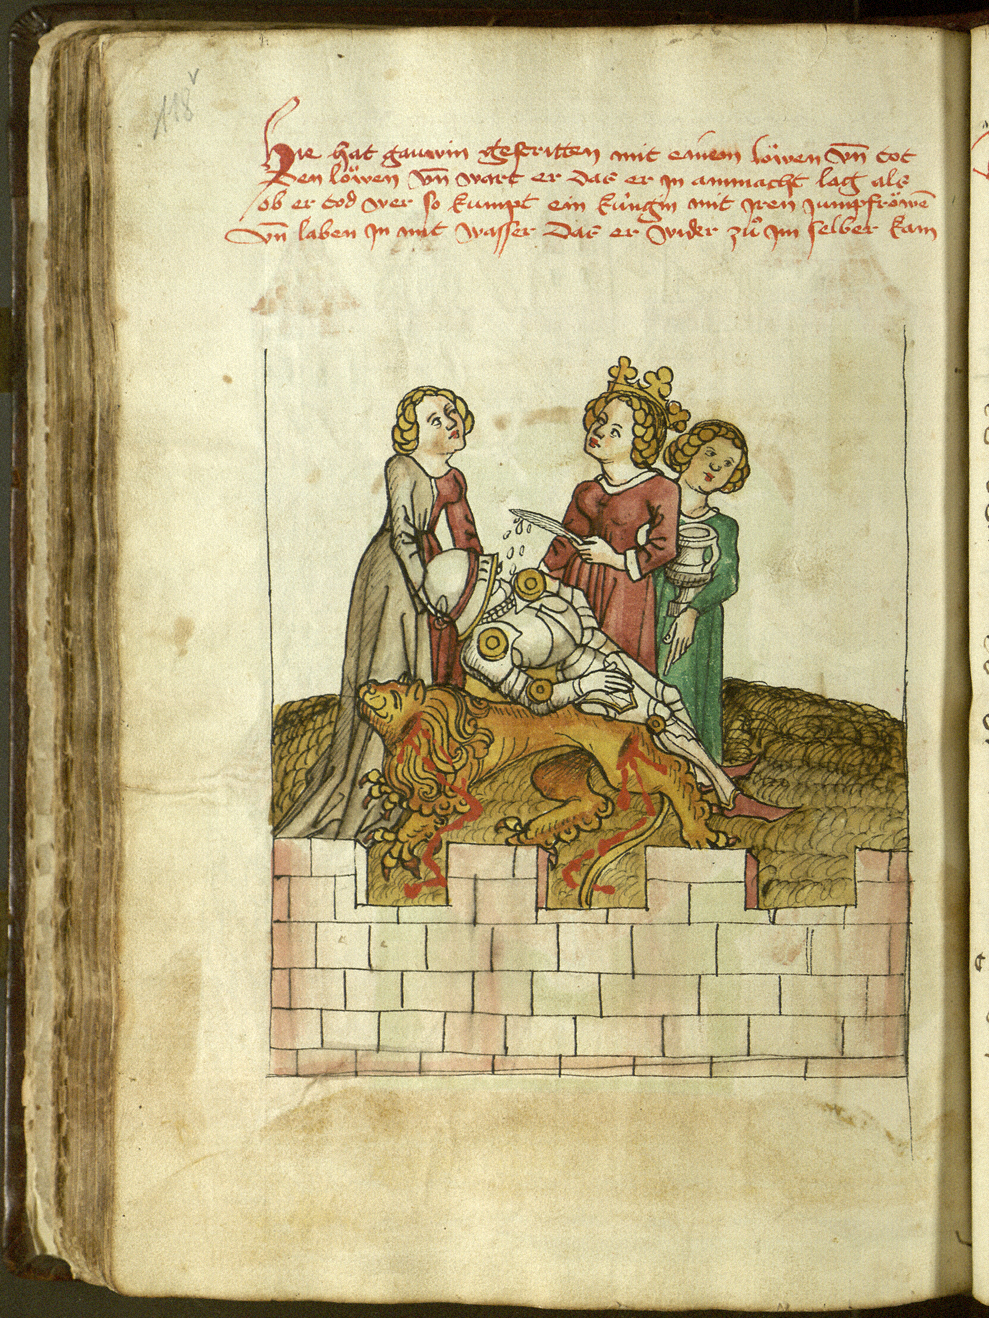 118v
Hie hat gawin gestritten mit einem löwen vn̄ tot
den löwen vn̄ wart er das er in anmacht lag als
ob er tod wer so kumpt ein kúngin mit iren junpfröwē
vn̄ laben in mit wasser das er wider zů im selber kam